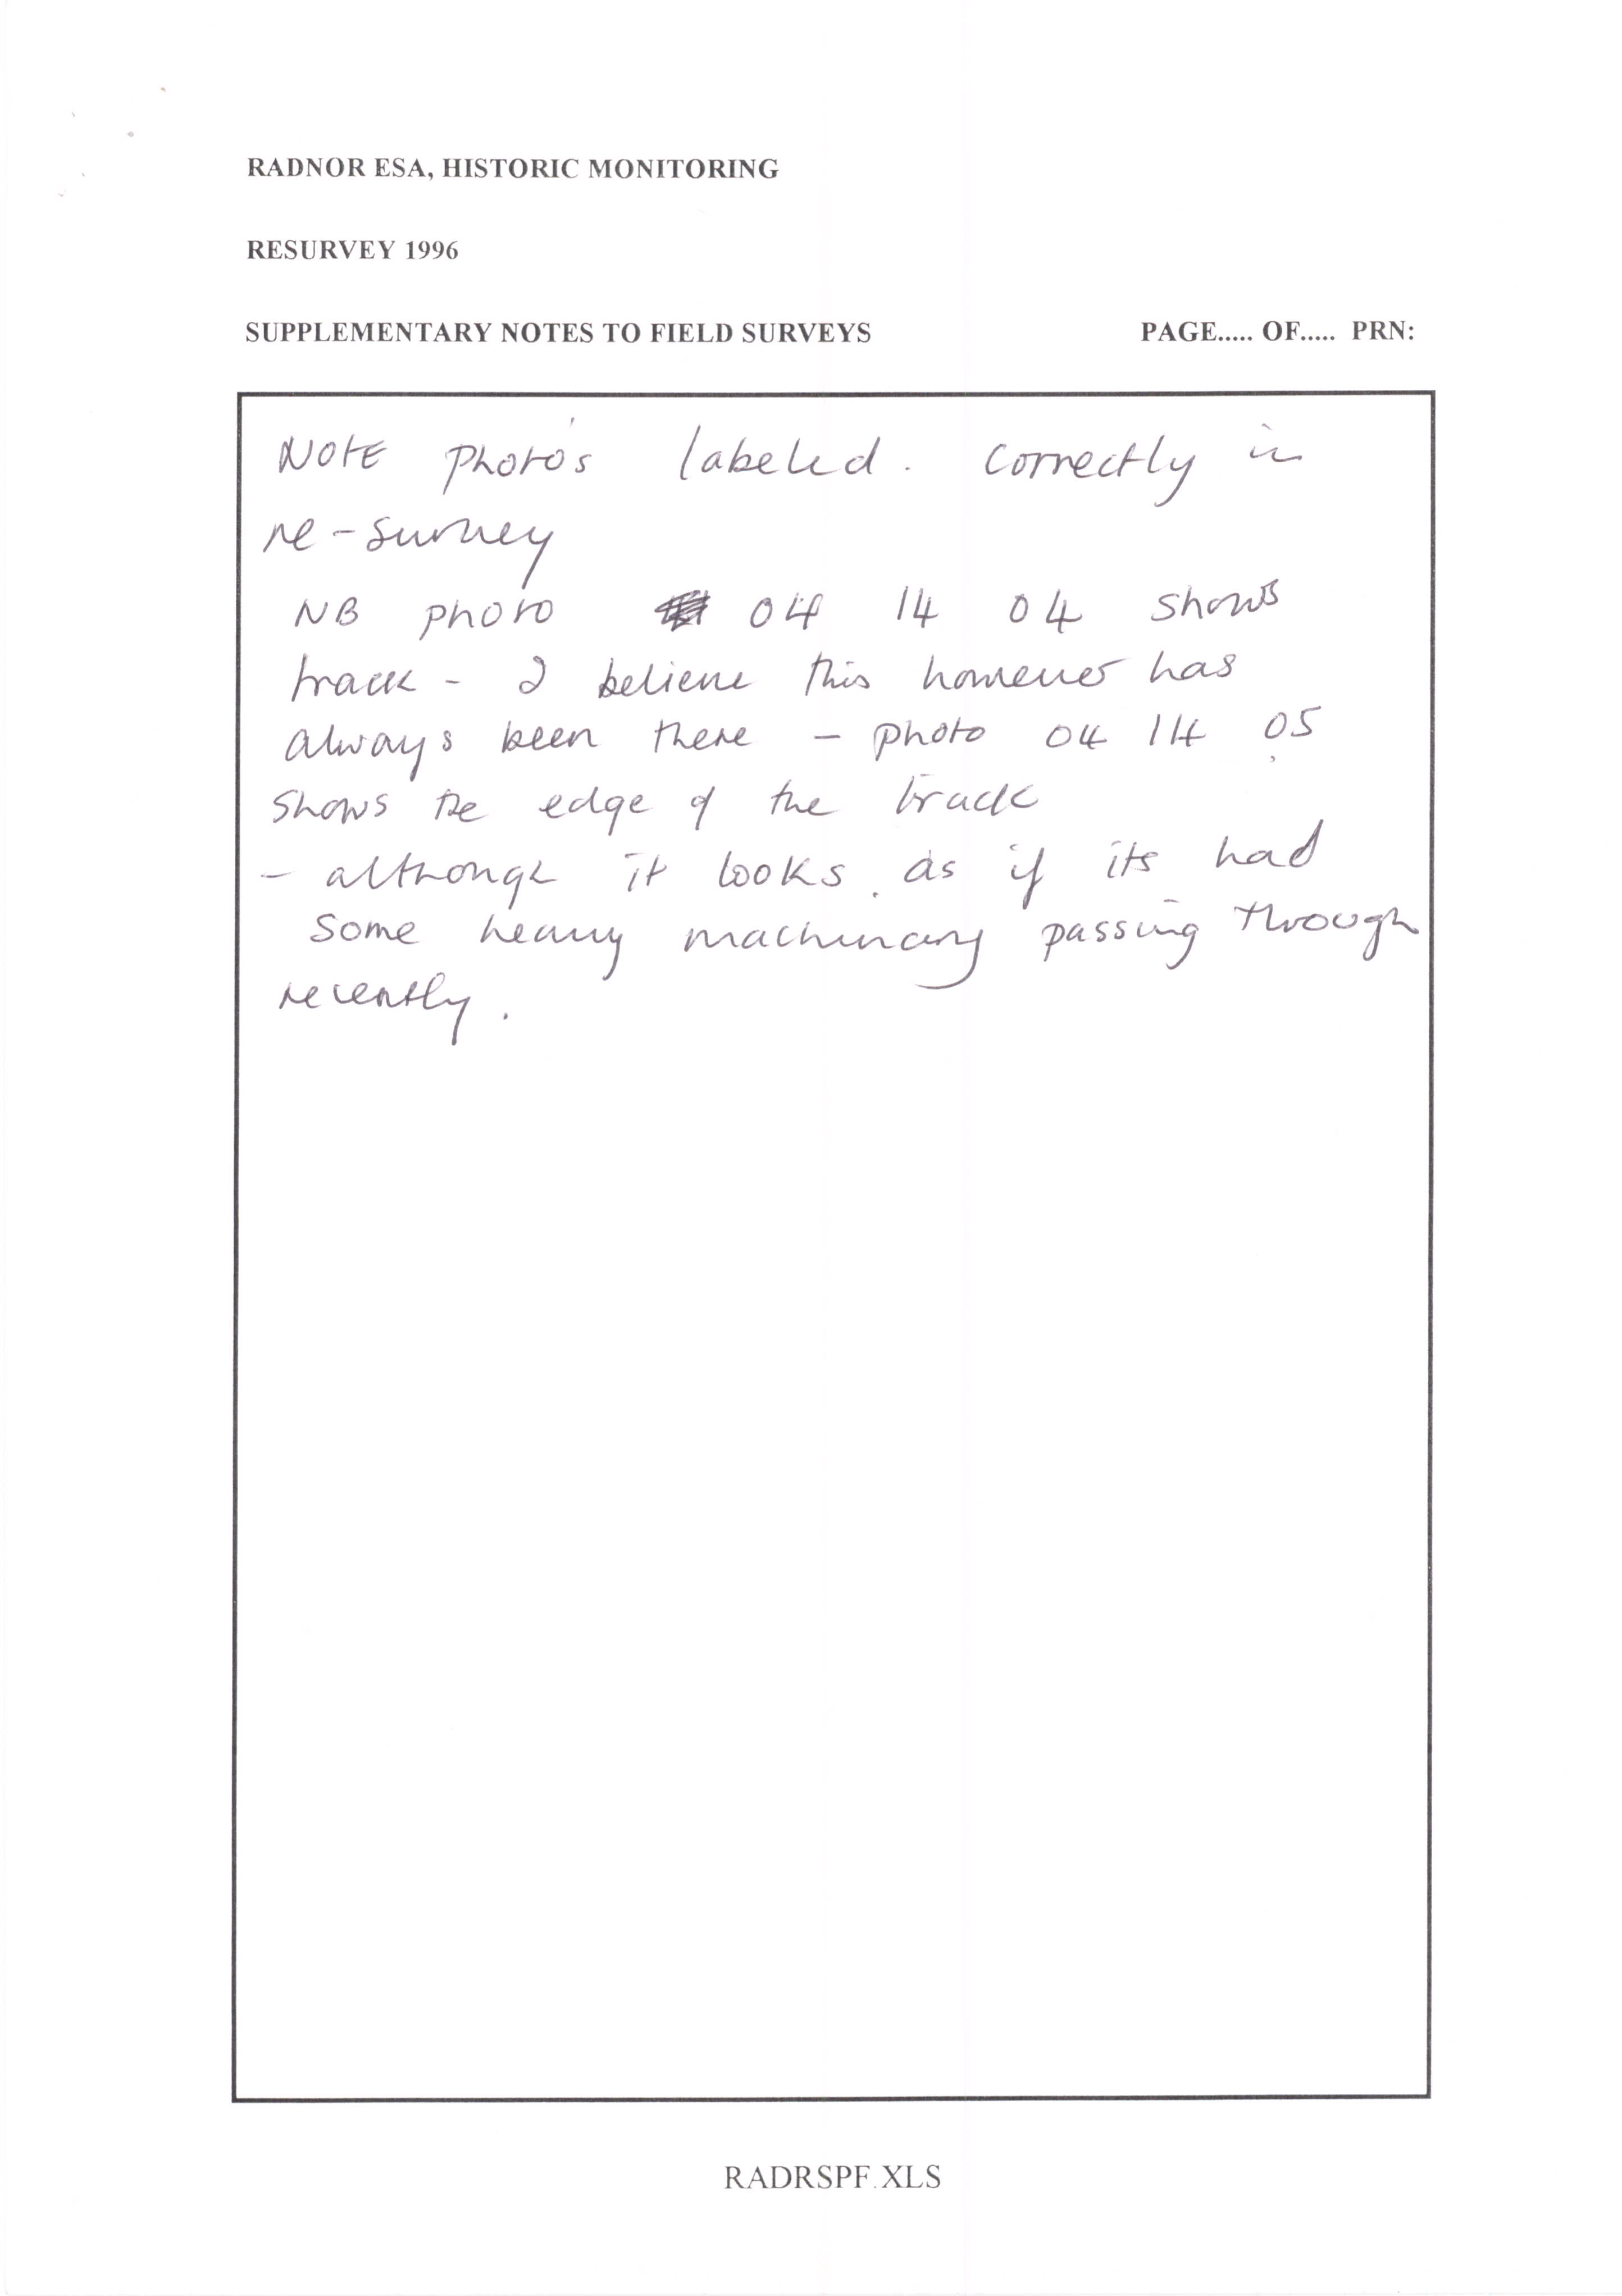 RADNOR ESA, HISTORIC MONITORING
RESURVEY 1996
SUPPLEMENTARY NOTES TO FIELD SURVEYS PAGE..... OF..... PRN:
NOTE photo's labeled. correctly in
re-survey
NB photo 04 14 04 shows
track - I believe this however has
always been there - photo 04 14 05
shows the edge of the track
- although it looks as if its had
some heavy machinary passing through
recently.
RADRSPF.XLS